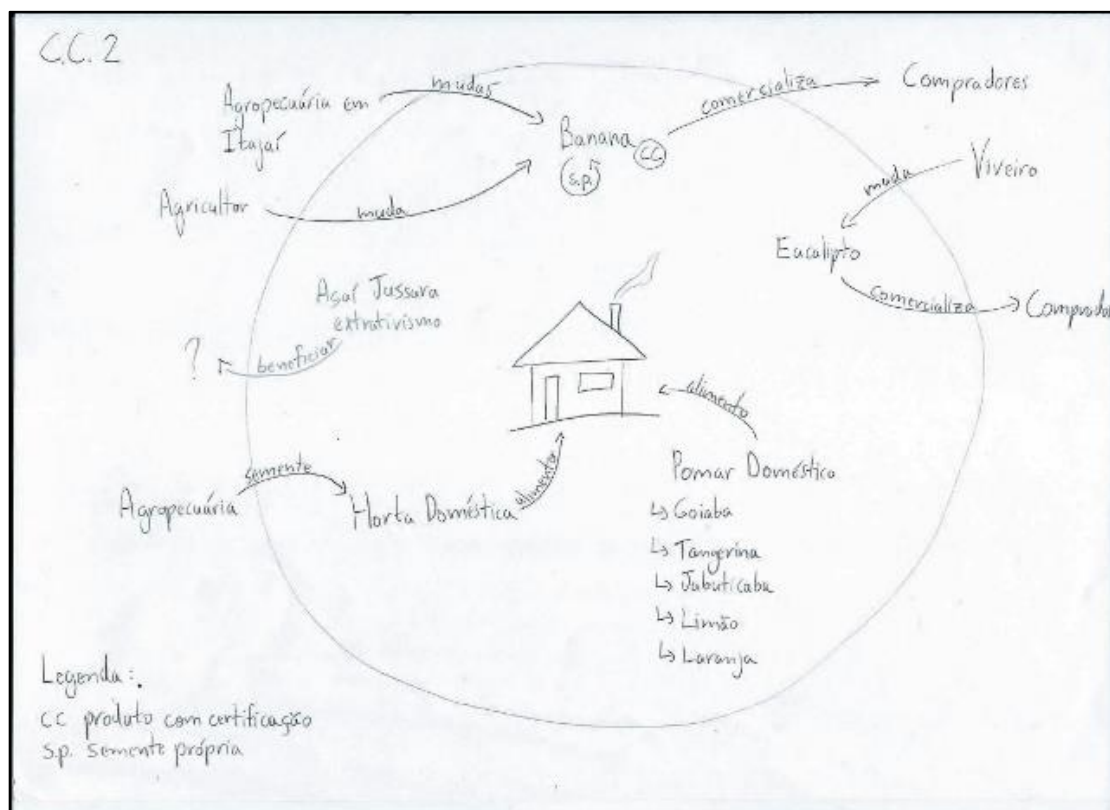 C.C. 2
Agropecuária em
Itajaí
mudas
Banana
CC
s.p.
comercializa
Compradores
Agricultor
muda
Viveiro
muda
Eucalipto
comercializa
Comprador
Açaí Jussara
extrativismo
beneficiar
?
alimento
Agropecuária
semente
Horta Doméstica
alimentar
Pomar Doméstico
↳ Goiaba
↳ Tangerina
↳ Jabuticaba
↳ Limão
↳ Laranja
Legenda:.
CC produto com certificação
s.p. semente própria